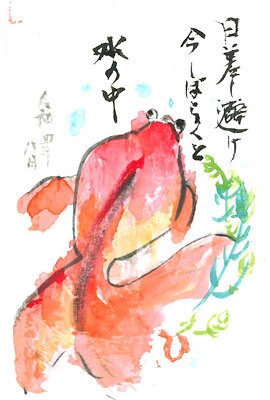 日差し避け
今しばらくと
水の中
令和四年
八月
ひ